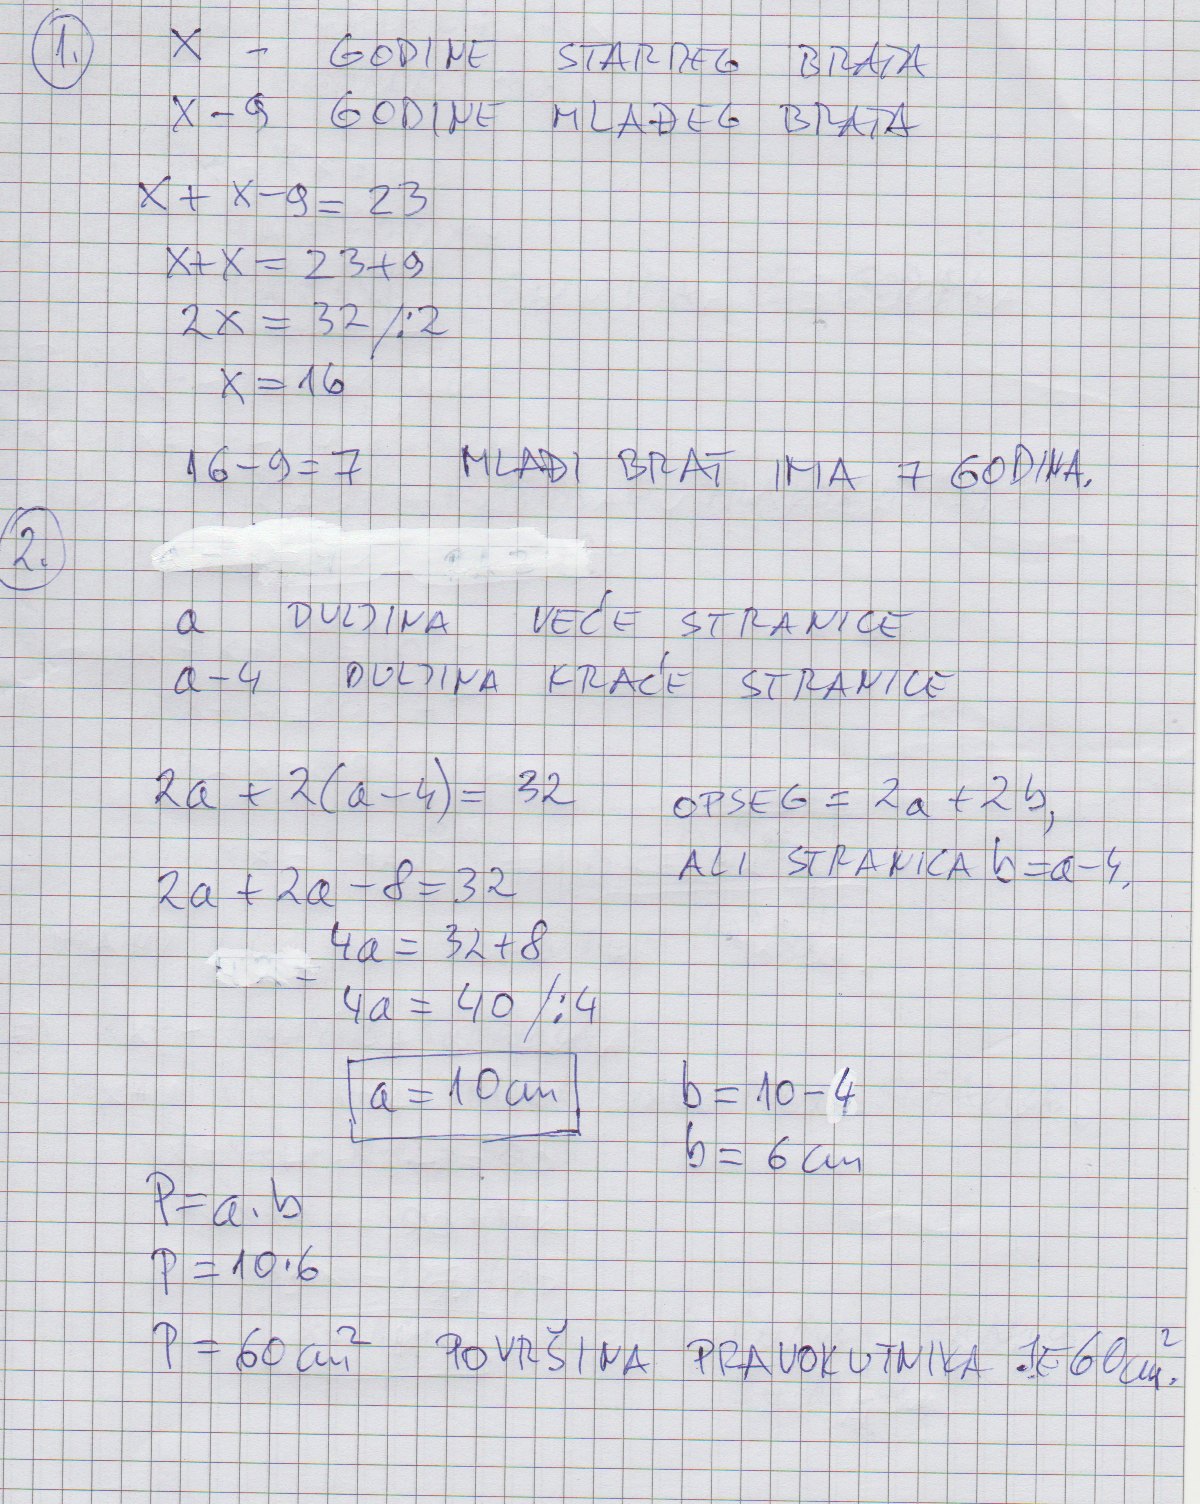 1. X - GODINE STARREG BRATA
X-9 GODINE MLAĐEG BRATA
X + X-9 = 23
X+X = 23+9
2X = 32 /:2
X = 16
16-9=7 MLAĐI BRAT IMA 7 GODINA.
2.
a DULJINA VEĆE STRANICE
a-4 DULJINA KRAĆE STRANICE
2a + 2(a-4) = 32 OPSEG = 2a + 2b,
ALI STRANICA b = a-4.
2a + 2a - 8 = 32
4a = 32+8
=
4a = 40 /:4
a = 10 cm b = 10-4
b = 6 cm
P = a·b
P = 10·6
P = 60 cm² POVRŠINA PRAVOKUTNIKA JE 60 cm².